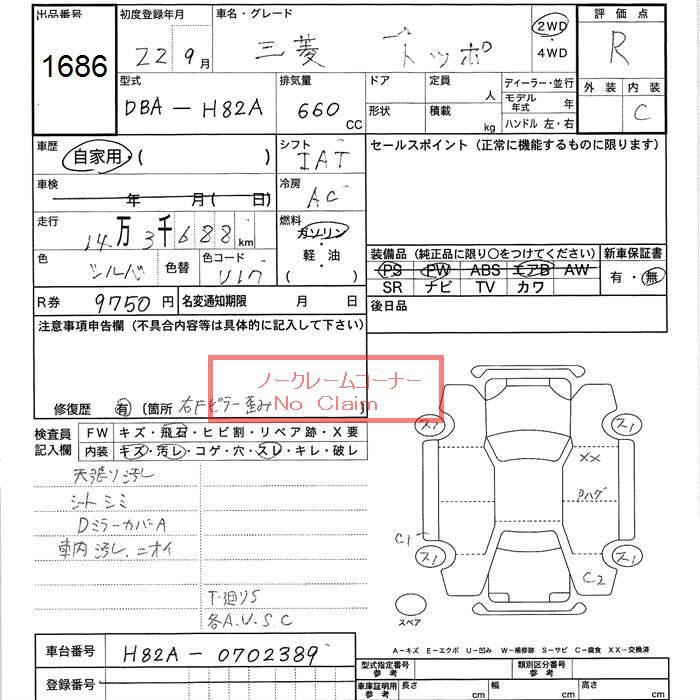 出品番号 初度登録年月 車名・グレード 評価点
1686 22 9月 三菱 トッポ 2WD・4WD R
型式 排気量 ドア 定員 ディーラー・並行 外装 内装
DBA-H82A 660 CC 形状 積載 人 kg モデル年式 年 ハンドル 左・右 C
車歴 シフト セールスポイント(正常に機能するものに限ります)
自家用・( ) IAT
車検 年 月( 日) 冷房 AC
走行 燃料
14万3千688km ガソリン・軽・油( )
装備品(純正品に限り○をつけてください) 新車保証書
色 シルバ 色替 色コード U17 PS PW ABS エアB AW 有・無
SR ナビ TV カワ
R券 9750円 名変通知期限 月 日 後日品
注意事項申告欄(不具合内容等は具体的に記入して下さい)
ノークレームコーナー
No Claim
修復歴 有(箇所 右Fピラー歪み )
検査員記入欄 FW キズ・飛石・ヒビ割・リペア跡・X要
内装 キズ・汚レ・コゲ・穴・スレ・キレ・破レ
天張リ汚レ
シートシミ
DミラーカバーA
車内汚レ、ニオイ
T.廻りS
各A.U.S.C
ス1 ス1
XX
Pハゲ
C1
ス1 ス1
C2
スペア
A-キズ E-エクボ U-凹み W-補修跡 S-サビ C-腐食 XX-交換済
車台番号 H82A-0702389 型式指定番号参考 類別区分番号参考
登録番号 車庫証明用参考 長さ cm 幅 cm 高さ cm